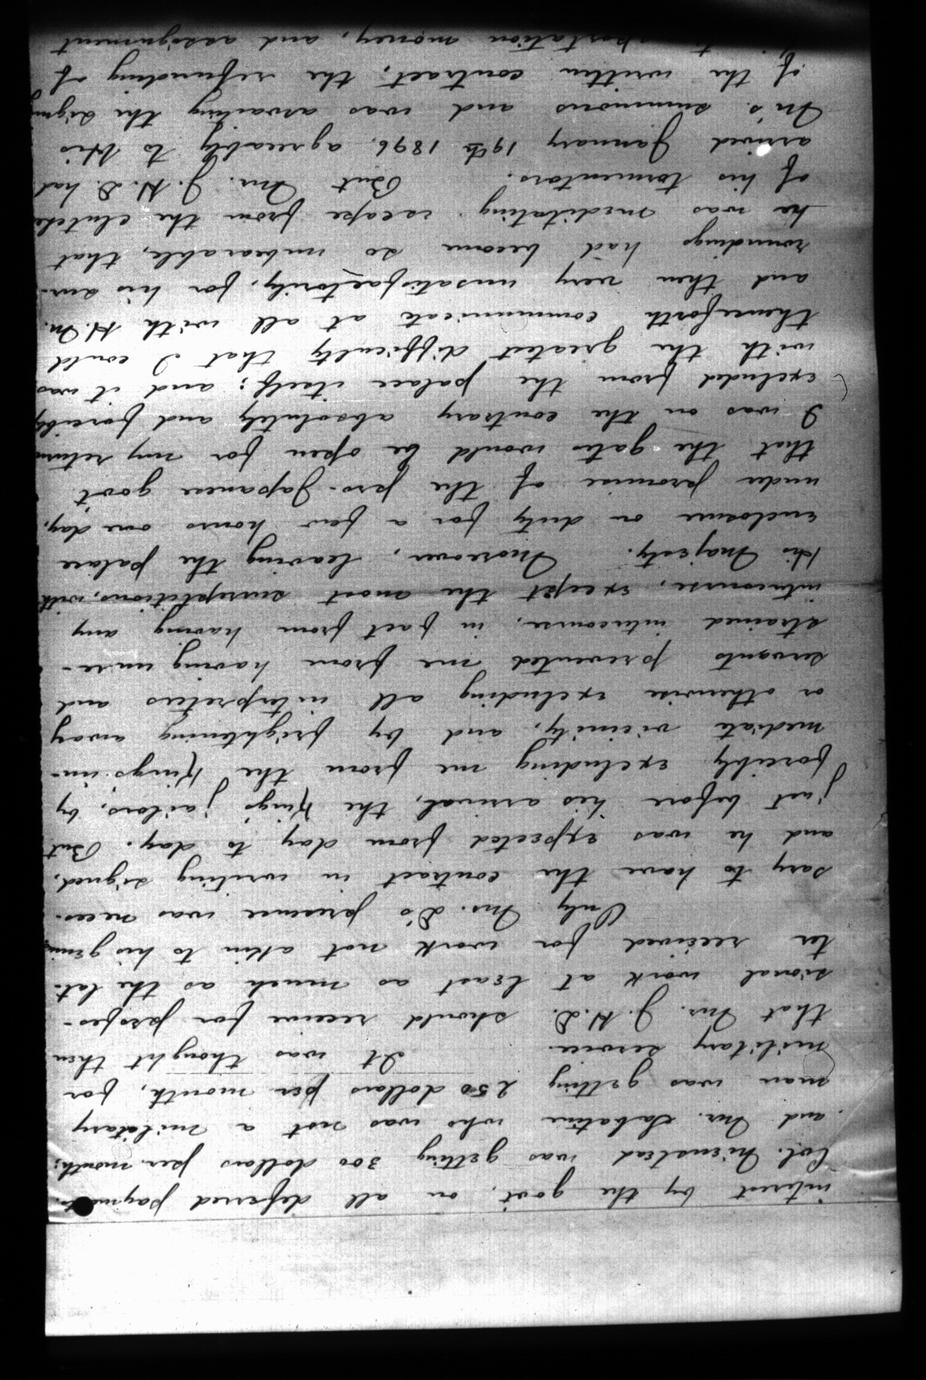 interest by the govt, on all deferred payments.
Col. Nienstead was getting 300 dollars per month;
and Mr. Sabatin who was not a military
man was getting 250 dollars per month, for
military service. It was thought then
that Mr. J. H. D. should receive for profes-
sional work at least as much as the lat-
ter received for work not akin to his
Only Mr. D's presence was neces-
sary to have the contract in writing signed,
and he was expected from day to day. But
just before his arrival, the King's jailors, by
forcibly excluding me from the King's im-
mediate vicinity, and by frightening away
or otherwise excluding all interpreters and
servants prevented me from having unre-
strained intercourse, in fact from having any
intercourse, except the most surreptitious, with
His Majesty. Moreover, leaving the palace
enclosure on duty for a few hours one day,
under promise of the pro-Japanese govt,
that the gates would be open for my return
I was on the contrary absolutely and forcibly
excluded from the palace itself; and it was
with the greatest difficulty that I could
thenceforth communicate at all with H. M.
and then very unsatisfactorily, for his sur-
roundings had become so unbearable, that
he was meditating escape from the clutches
of his tormentors. But Mr. J. H. D. had
arrived January 19th 1896, agreeably to His
M's summons and was awaiting the
of the written contract, the refunding of
money, and assignment